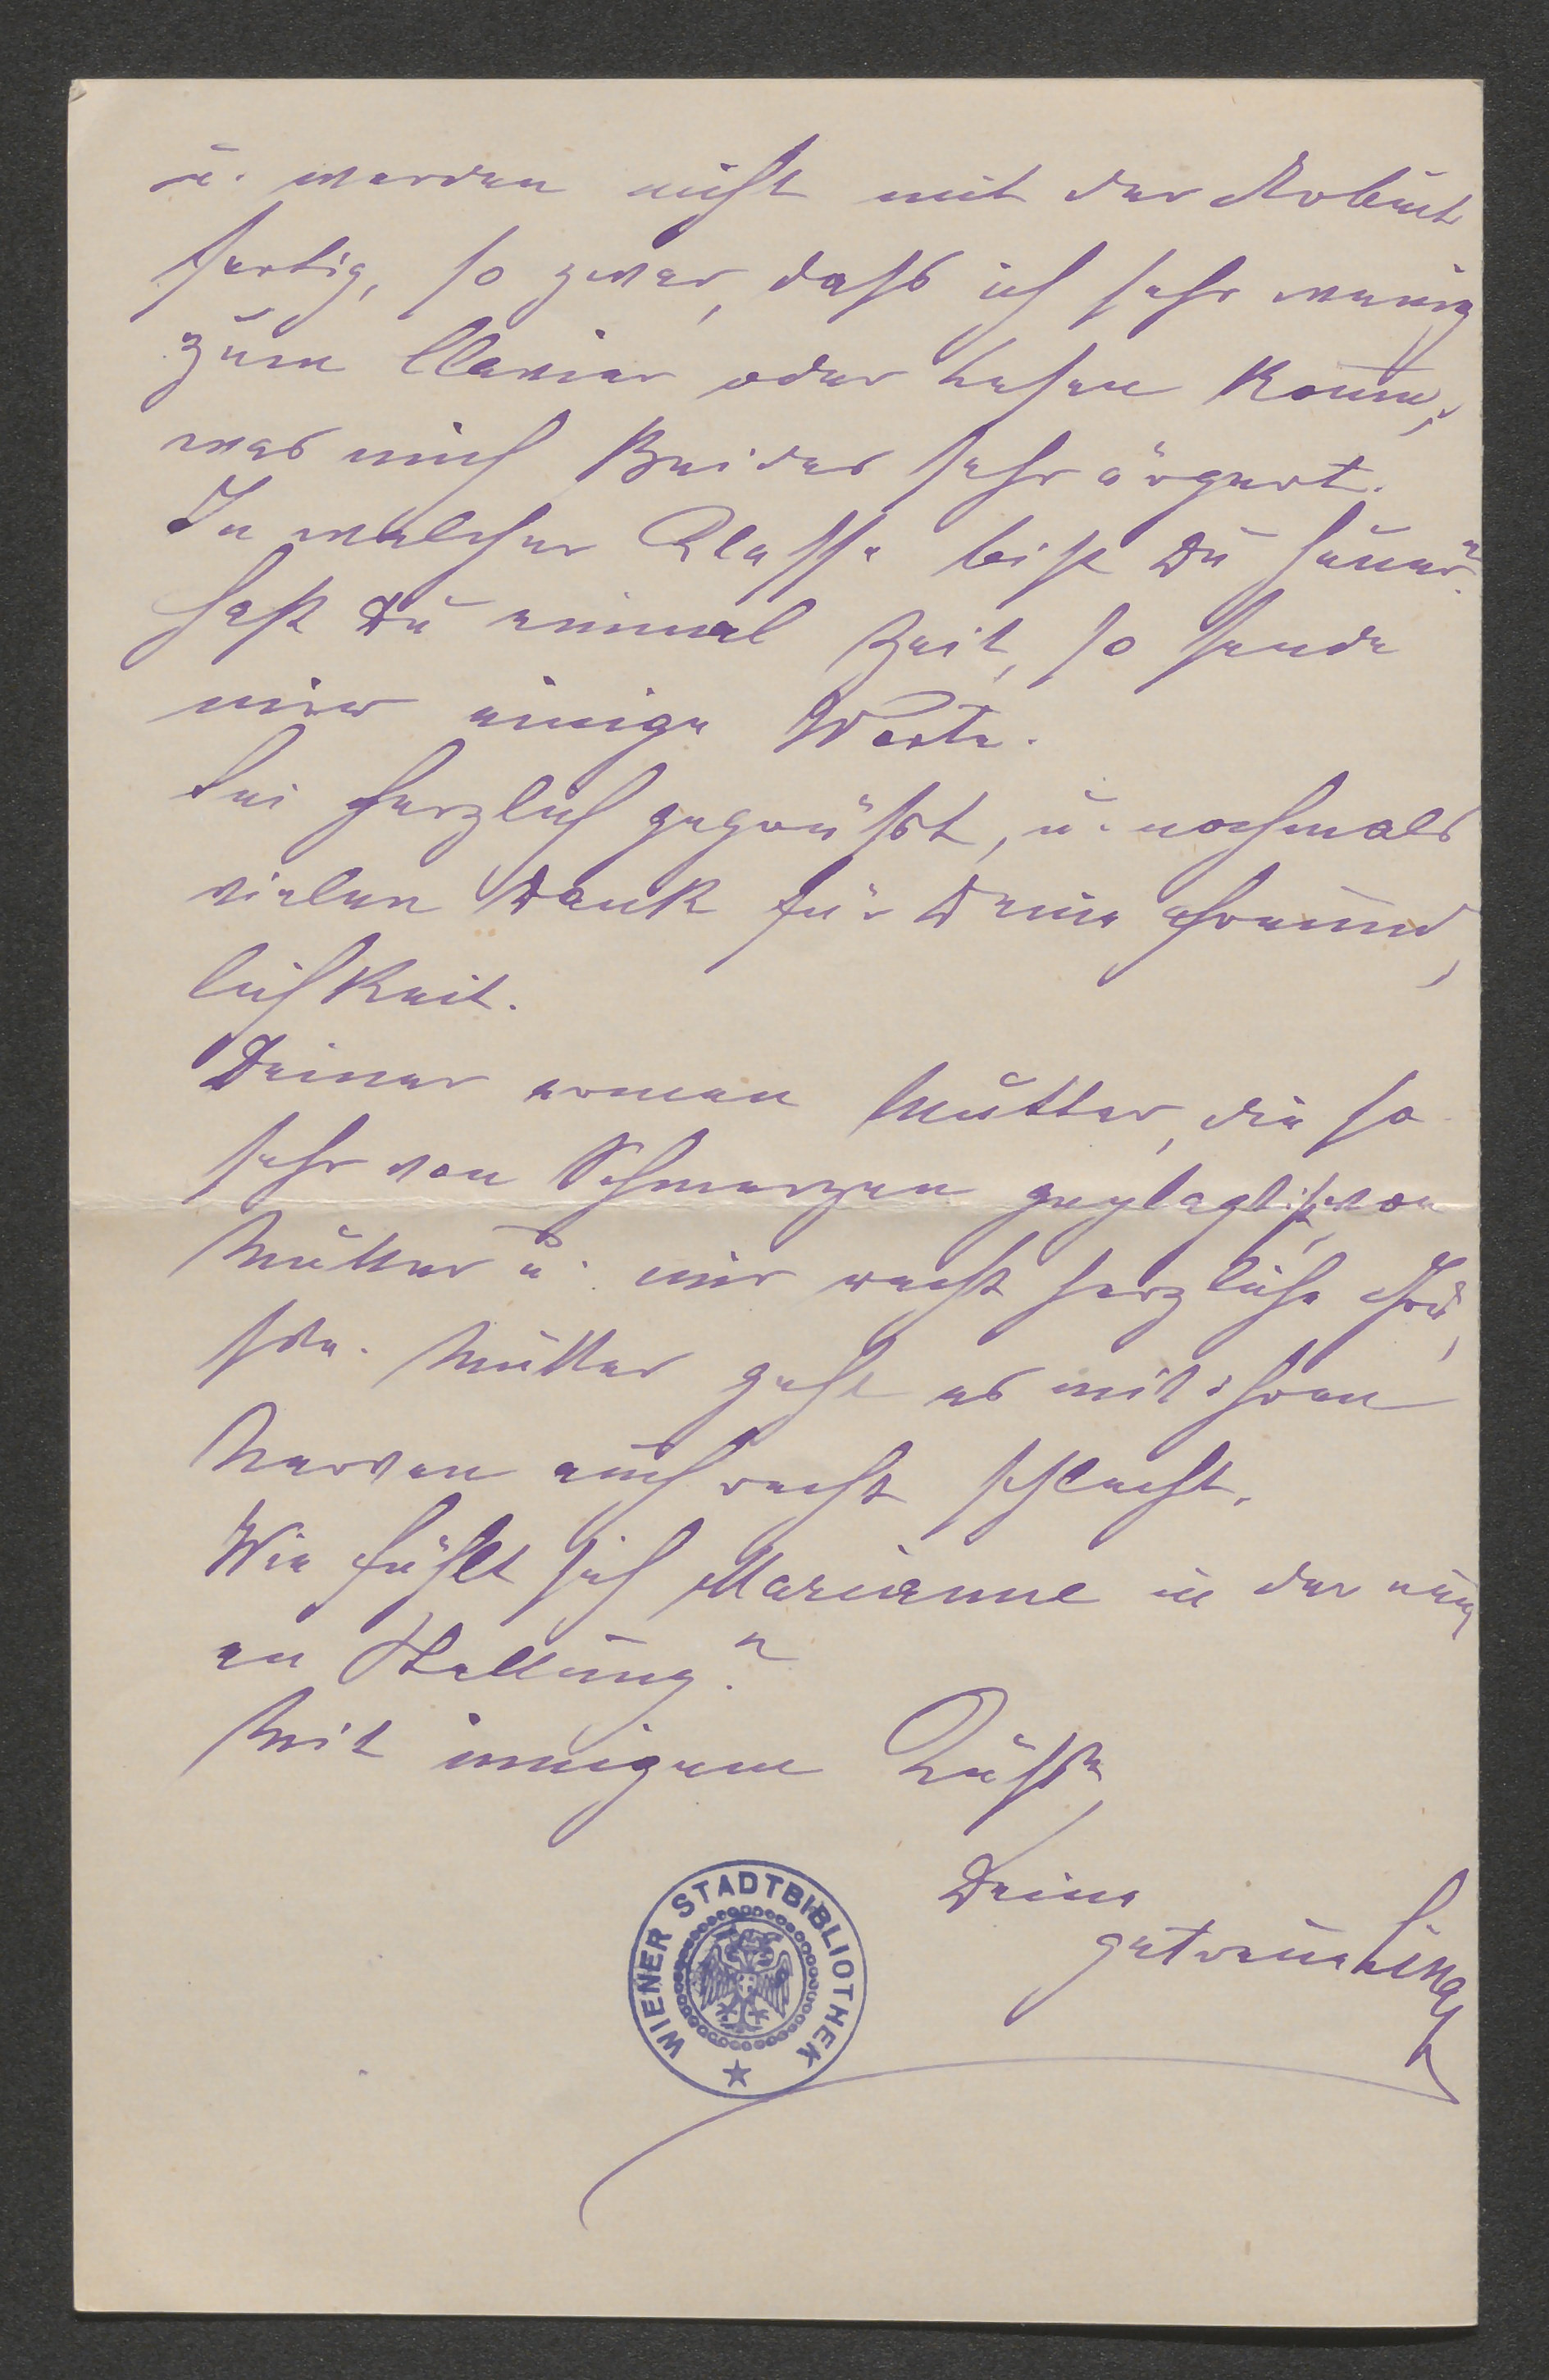 u. werden nicht mit der Arbeit
fertig, so zwar, daß ich sehr wenig
zum Clavier oder Lesen komme,
was mich Beides sehr ärgert.
In welcher Classe bist Du heuer?
Hast Du einmal Zeit, so sende
mir einige Worte.
Sei herzlich gegrüßt, u. nochmals
vielen Dank für Deine Freund,
lichkeit.
Deiner armen Mutter, die so
sehr von Schmerzen geplagt ist, von
Mutter u. mir recht herzliche Grü,
ße. Mutter geht es mit ihren
Nerven auch recht schlecht.
Wie fühlt sich Marianne in der neu,
en Stellung?
Mit innigem Kuße
Deine
getreue Lina
WIENER STADTBIBLIOTHEK